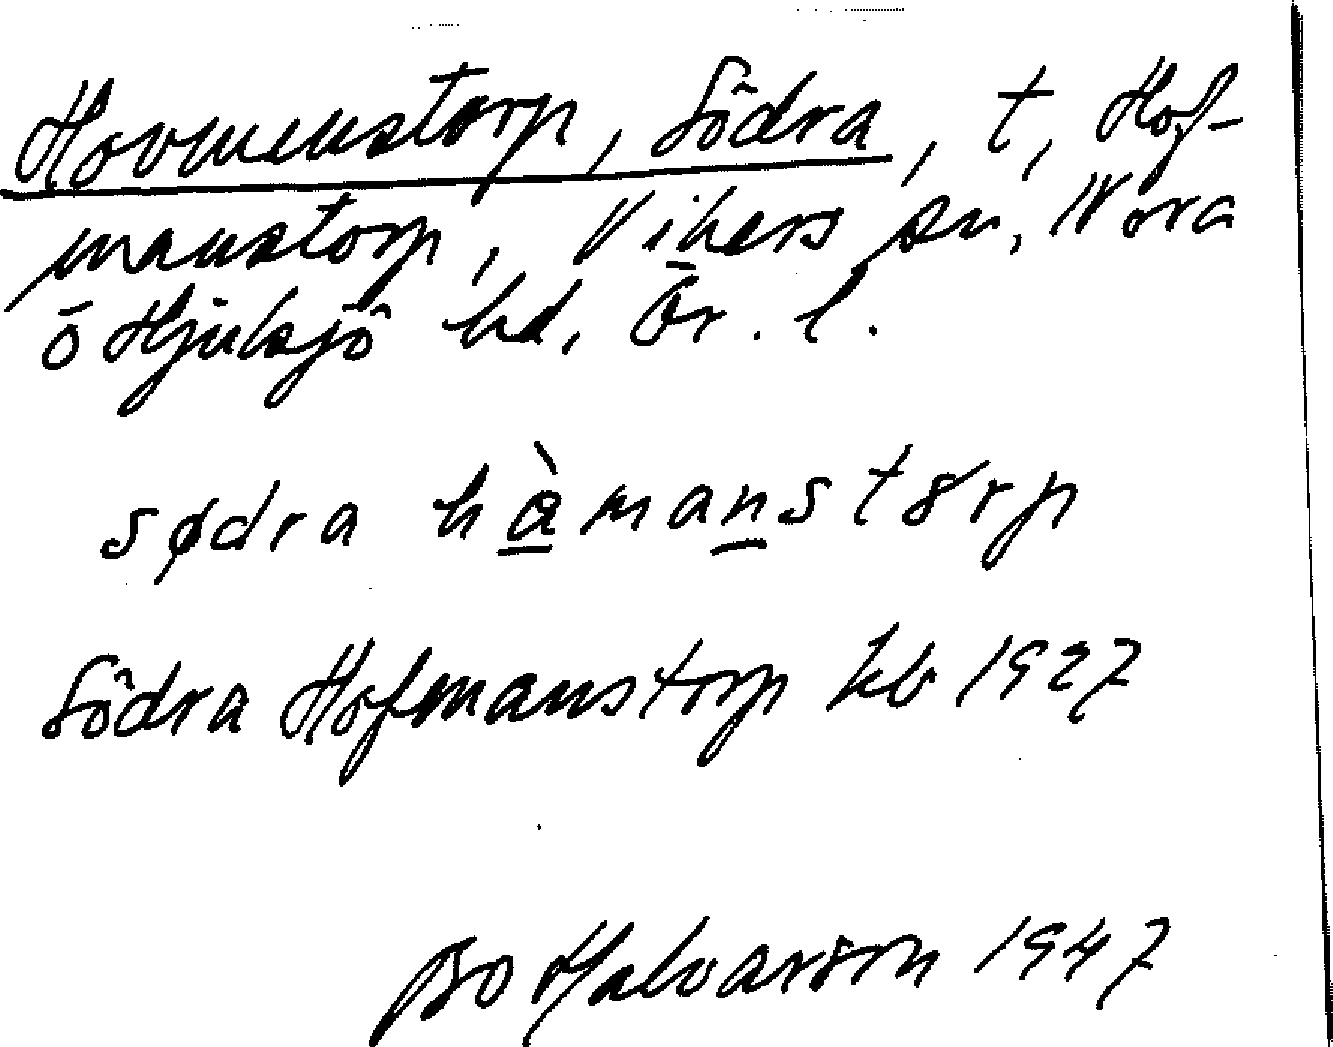 Hovmenstorp, Södra, t, Hof-
manstorp, Vikers sn, Nora
o Hjulsjö hd, Ör. l.
sødra hàmanstørp
Södra Hofmanstorp kb 1927
Bo Halvarson 1947